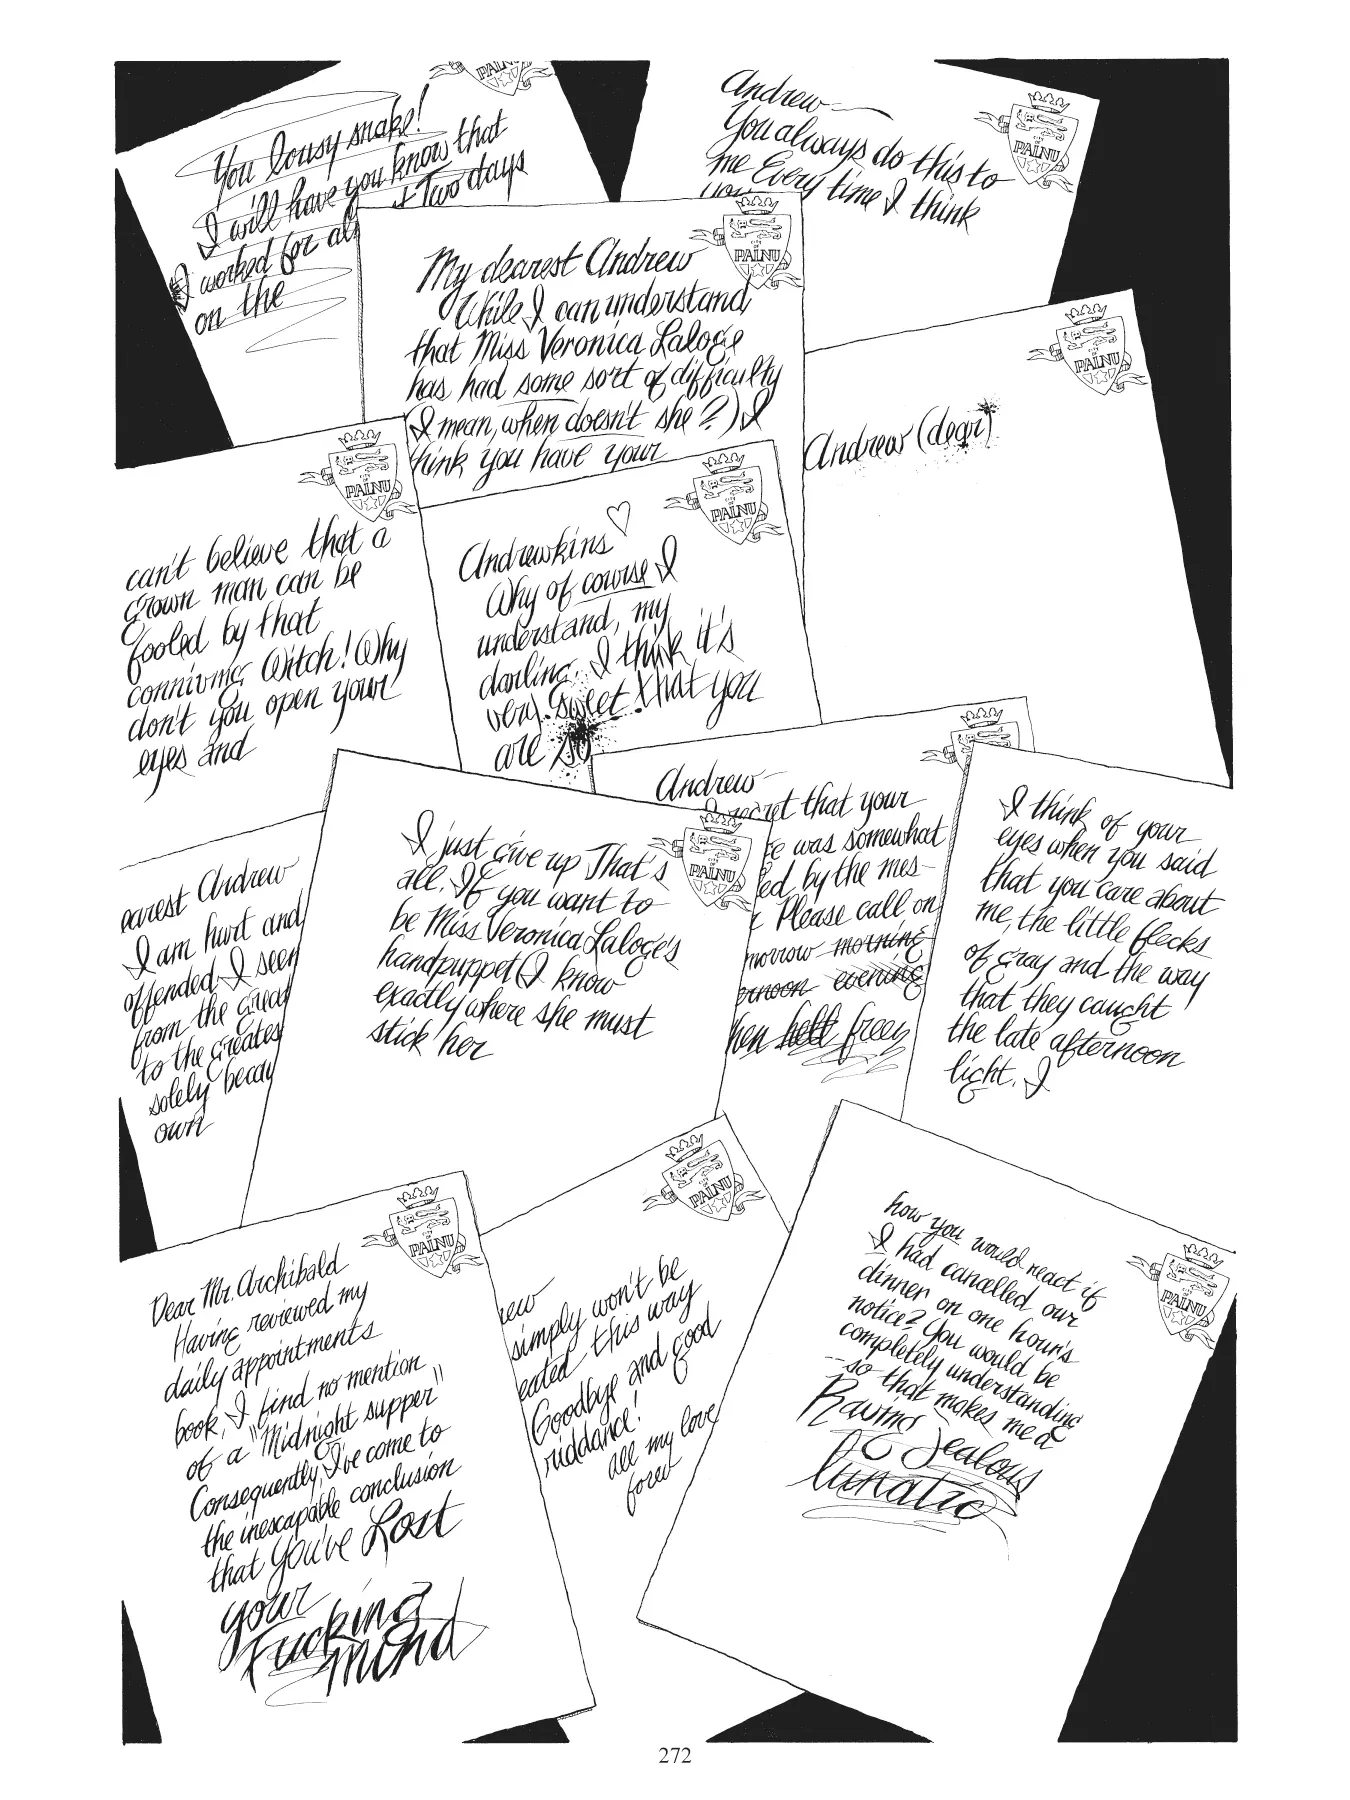 You lousy snake!
I will have you know that
I worked for al t Two days
on the
PALNU
Andrew—
You always do this to
me Every time I think
you
PALNU
My dearest Andrew
While I can understand
that Miss Veronica Laloge
has had some sort of difficulty
(I mean, when doesn't she?) I
think you have your
PALNU
Andrew (dear)
PALNU
can't believe that a
grown man can be
fooled by that
conniving Witch! Why
don't you open your
eyes and
PALNU
Andrewkins
Why of course I
understand, my
darling. I think it's
very sweet that you
are so
PALNU
earest Andrew
I am hurt and
offended. I seem
from the great
to the greates
solely becau
own
I just give up That's
all. If you want to
be Miss Veronica Laloge's
handpuppet (I know
exactly where she must
stick her
PALNU
Andrew—
I regret that your
ce was somewhat
ed by the mes-
r Please call on
morrow morning
ernoon evening
hen hell freez
I think of your
eyes when you said
that you care about
me, the little flecks
of gray and the way
that they caught
the late afternoon
light. I
Dear Mr. Archibald
Having reviewed my
daily appointments
book, I find no mention
of a "Midnight supper"
Consequently, I've come to
the inescapable conclusion
that you've Lost
your
Fucking
mind
PALNU
rew
simply won't be
eated this way
Goodbye and good
riddance!
all my love
forev
PALNU
how you would react if
I had cancelled our
dinner on one hour's
notice? You would be
completely understanding
—so that makes me a
Raving Jealous
lunatic
PALNU
272